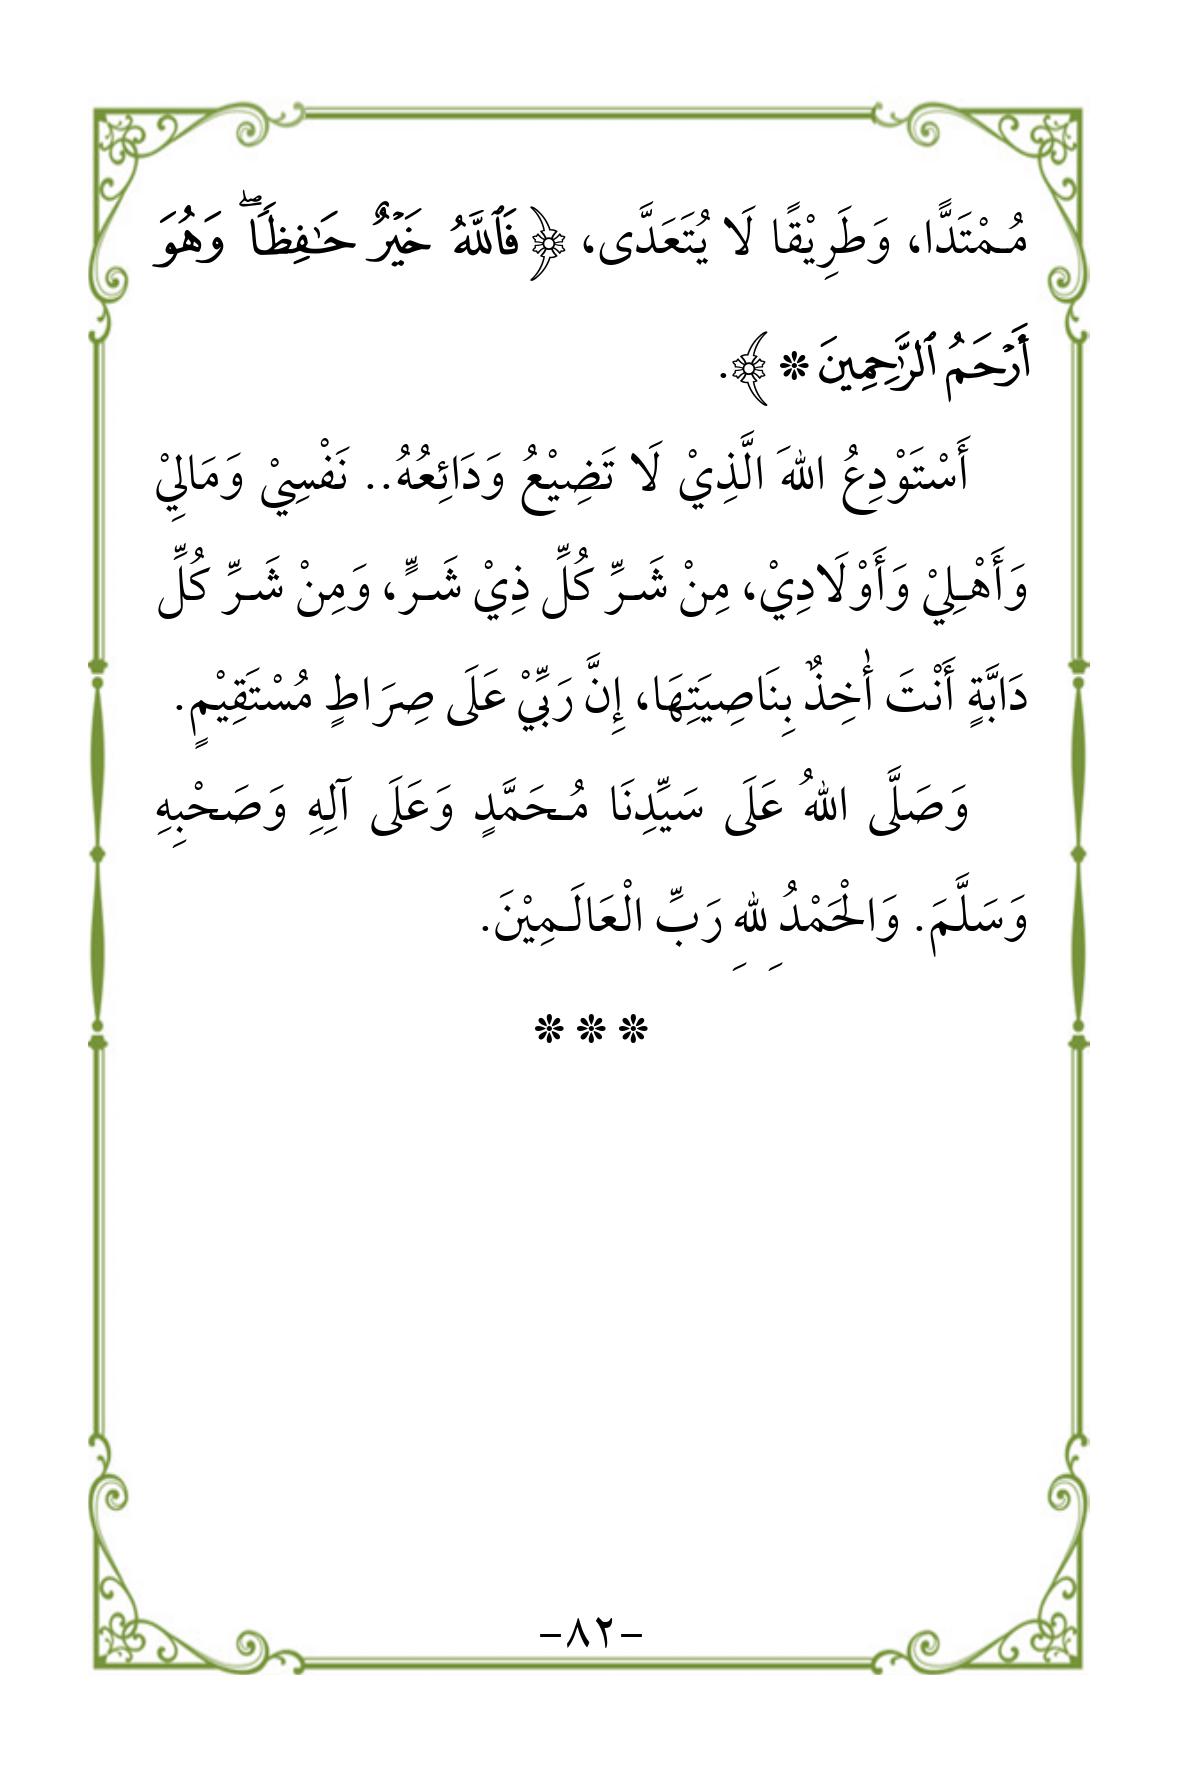 مُـمْتَدًّا، وَطَرِيْقًا لَا يُتَعَدَّى، ﴿فَٱللَّهُ خَيْرٌ حَـٰفِظًاۖ وَهُوَ
أَرْحَمُ ٱلرَّٰحِمِينَ ❊﴾.
أَسْتَوْدِعُ اللهَ الَّذِيْ لَا تَضِيْعُ وَدَائِعُهُ.. نَفْسِيْ وَمَالِيْ
وَأَهْـلِيْ وَأَوْلَادِيْ، مِنْ شَـرِّ كُلِّ ذِيْ شَـرٍّ، وَمِنْ شَـرِّ كُلِّ
دَابَّةٍ أَنْتَ أٰخِذٌ بِنَاصِيَتِهَا، إِنَّ رَبِّيْ عَلَى صِرَاطٍ مُسْتَقِيْمٍ.
وَصَلَّى اللهُ عَلَى سَيِّدِنَا مُـحَمَّدٍ وَعَلَى آلِهِ وَصَحْبِهِ
وَسَلَّمَ. وَالْحَمْدُ لِلهِ رَبِّ الْعَالَـمِيْنَ.
❊ ❊ ❊
–٨٢–